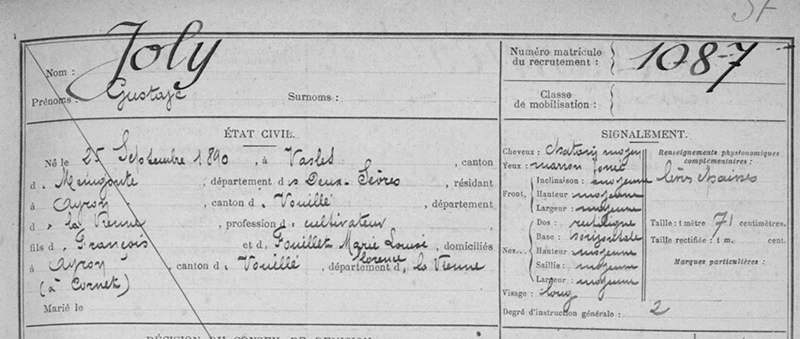 Nom : Joly
Prénoms : Gustave Surnoms :
Numéro matricule du recrutement : 1087
Classe de mobilisation :
ÉTAT CIVIL.
Né le 25 Septembre 1890, à Vasles, canton
d. Menigoute, département des Deux-Sèvres, résidant
à Ayron, canton d. Vouillé, département
d. la Vienne, profession d. cultivateur
fils d. François et d. Fouillet Marie Louise Florence, domiciliés
à Ayron, canton d. Vouillé, département d. la Vienne
(à Cornet)
Marié le
SIGNALEMENT.
Cheveux : chatain moyen
Yeux : marron foncé
Front, Inclinaison : moyenne
Hauteur : moyenne
Largeur : moyenne
Nez... Dos : rectiligne
Base : horizontale
Hauteur : moyenne
Saillie : moyenne
Largeur : moyenne
Visage : long
Renseignements physionomiques complémentaires :
lèvres
Taille : 1 mètre 71 centimètres.
Taille rectifiée : 1 m. cent.
Marques particulières :
Degré d'instruction générale : 2
DÉCISION DU CONSEIL DE REVISION